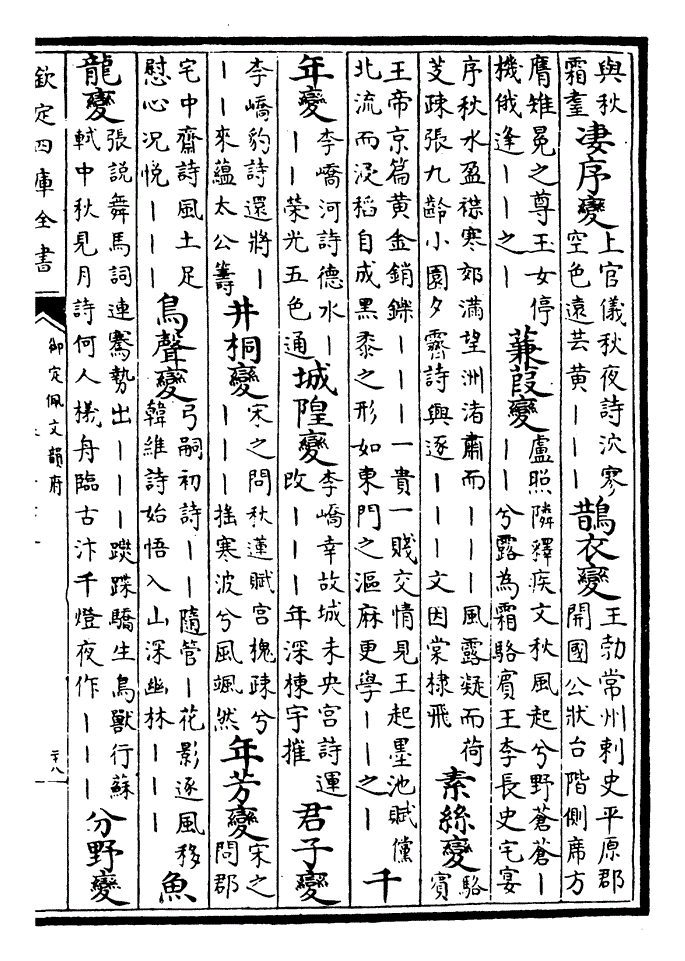 與秋
霜臺
凄序變
上官儀秋夜詩泬寥
空色遠芸黃丨丨丨
鵲衣變
王勃常州刺史平原郡
開國公狀台階側席方
膺雉冕之尊玉女停
機俄逢丨丨之丨
蒹葭變
盧照隣釋疾文秋風起兮野蒼蒼丨
丨兮露為霜駱賓王李長史宅宴
序秋水盈襟寒郊滿望洲渚肅而丨丨丨風露凝而荷
芰疎張九齡小園夕霽詩興逐丨丨丨文因棠棣飛
素絲變
駱
賓
王帝京篇黃金銷鑠丨丨丨一貴一賤交情見王起墨池賦儻
北流而浸稻自成黑黍之形如東門之漚麻更學丨丨之丨
千
年變
李嶠河詩德水丨
丨丨榮光五色通
城隍變
李嶠幸故城未央宮詩運
改丨丨丨年深棟宇摧
君子變
李嶠豹詩還將丨
丨丨來蘊太公籌
井桐變
宋之問秋蓮賦宮槐疎兮
丨丨丨搖寒波兮風颯然
年芳變
宋之
問郡
宅中齋詩風土足
慰心況悅丨丨丨
鳥聲變
弓嗣初詩丨丨隨管丨花影逐風移
韓維詩始悟入山深幽林丨丨丨
魚
龍變
張說舞馬詞連騫勢出丨丨丨蹀躞驕生鳥獸行蘇
軾中秋見月詩何人檥舟臨古汴千燈夜作丨丨丨
分野變
欽定四庫全書
御定佩文韻府